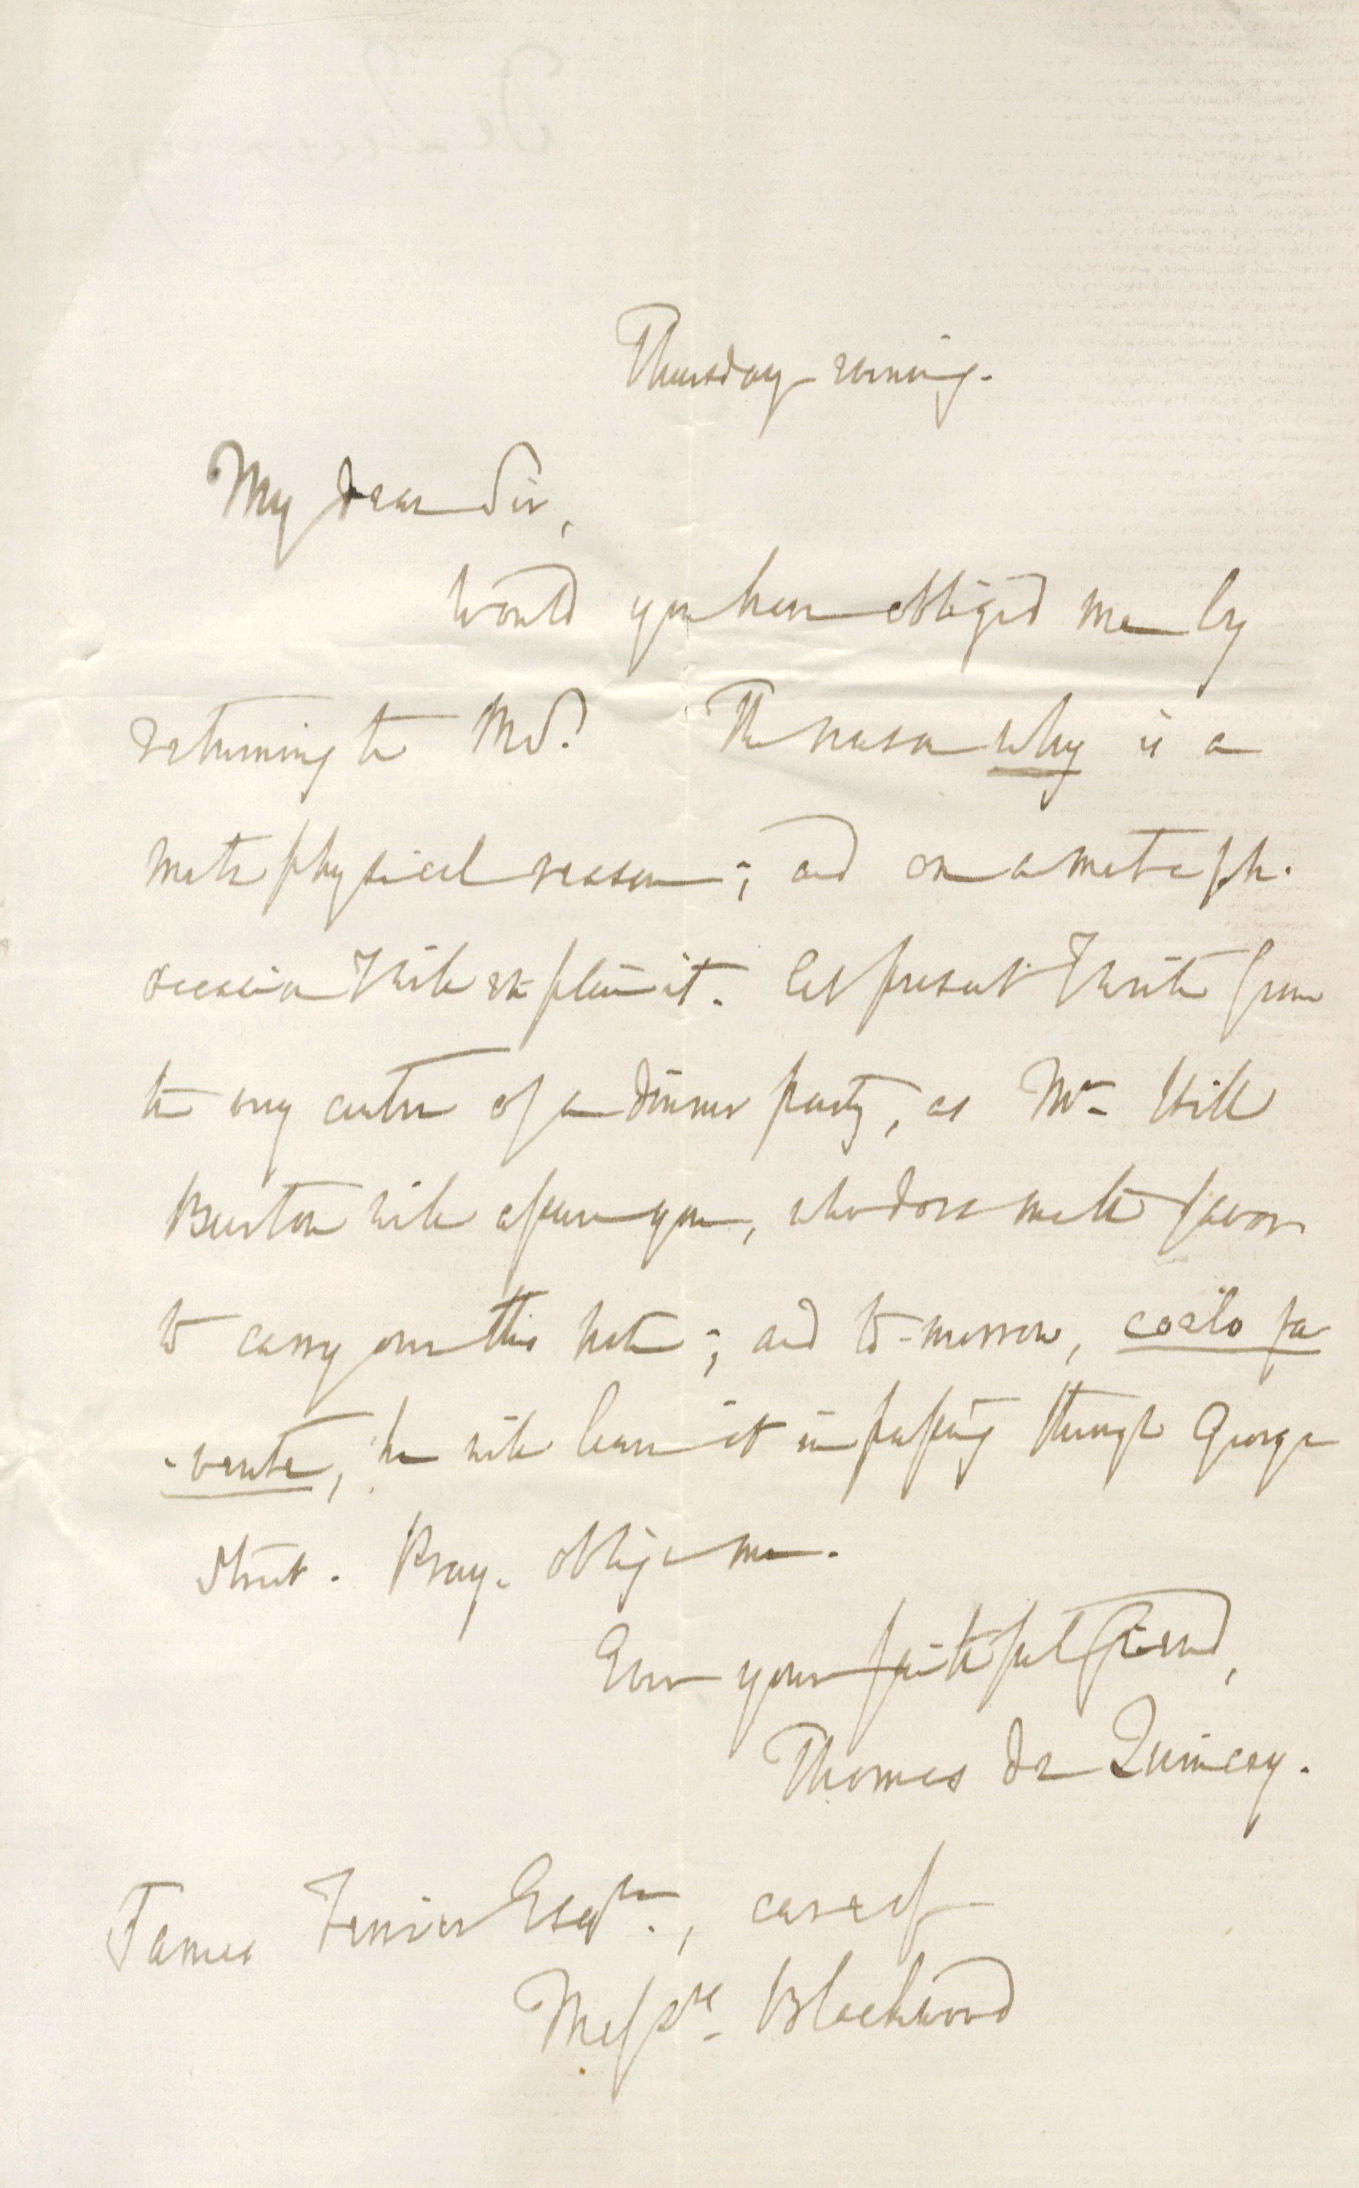 Thursday evening.
My dear Sir,
Would you have obliged me by
returning the MS.? The reason why is a
metaphysical reason; and on a metaph.
occasion I will explain it. At present I write from
the very centre of a dinner party, as Mr. Hill
Burton will assure you, who does me the favor
to carry over this note; and to-morrow, coelo fa
-vente, he will leave it in passing through George
Street. Pray, oblige me.
Ever your faithful friend,
Thomas de Quincey.
James Ferrier Esqre., care of
Messrs. Blackwood